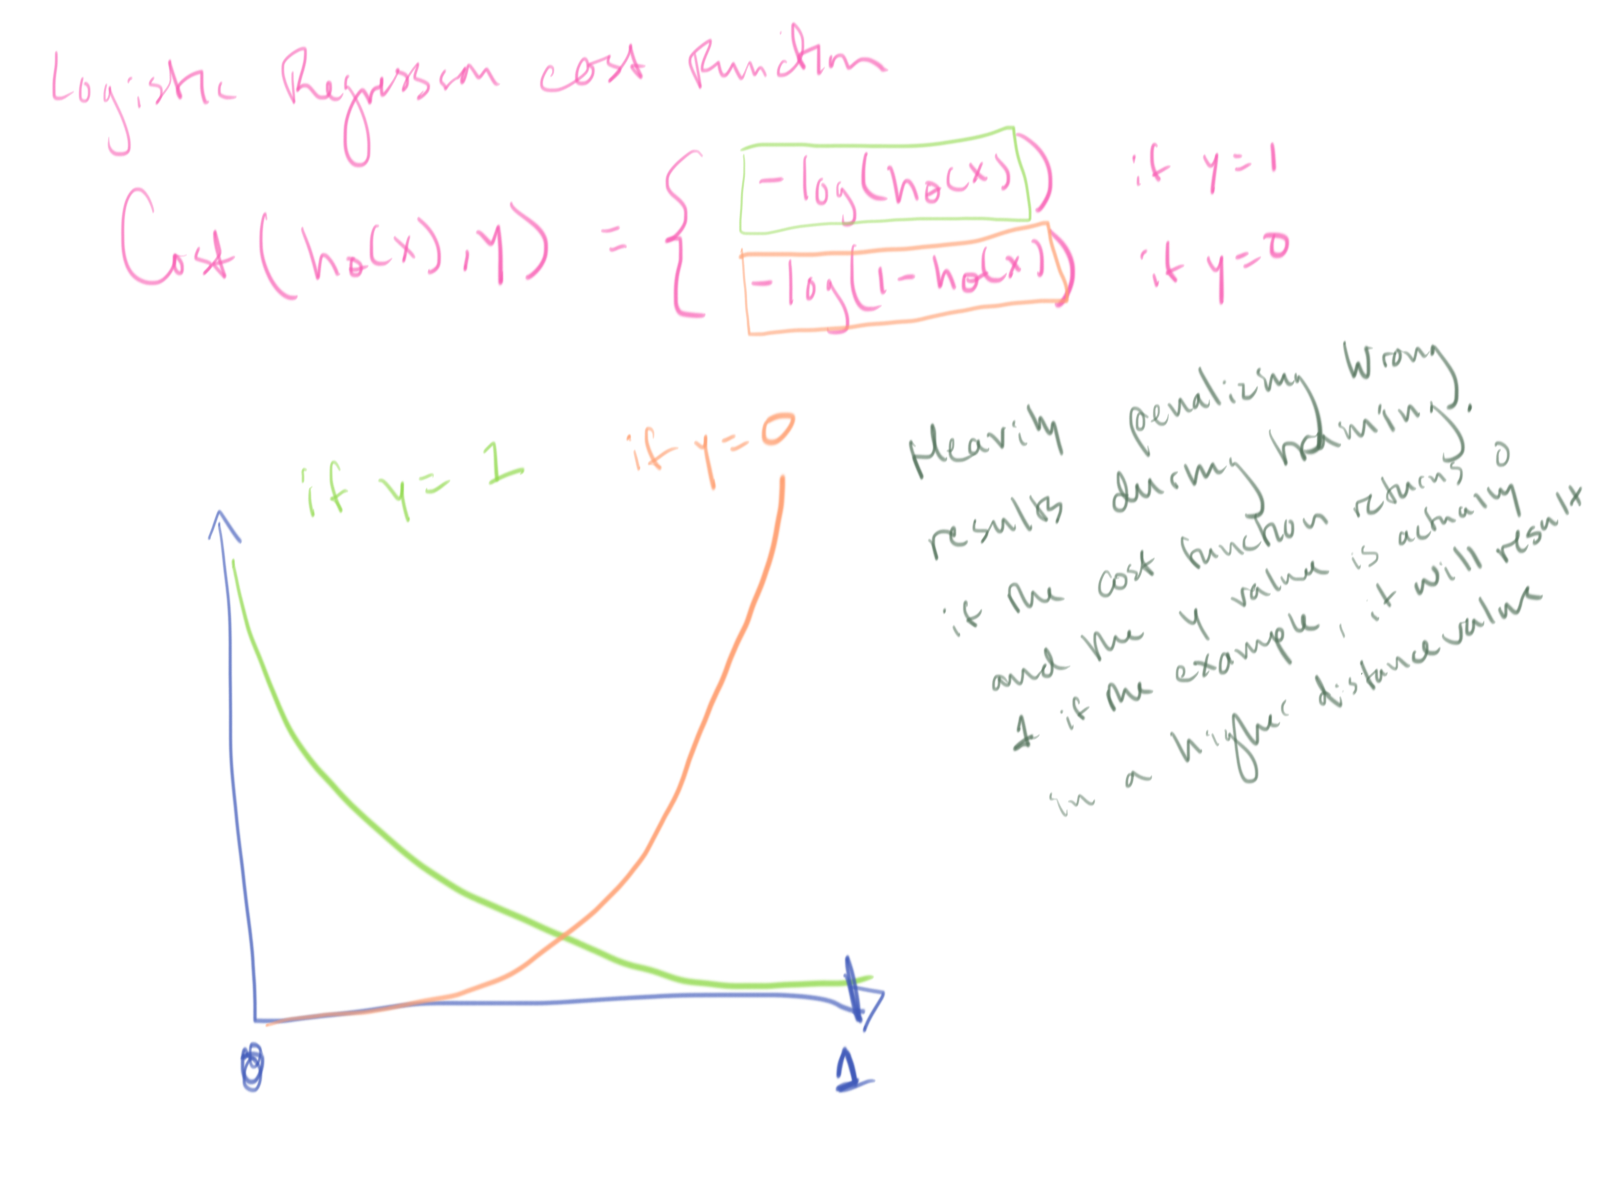 Logistic Regression cost Function
Cost(hθ(x), y) = { -log(hθ(x)) if y=1
-log(1-hθ(x)) if y=0
if y = 1 if y=0
Heavily penalizing Wrong
results during training.
if the cost function returns 0
and the y value is actually
1 if the example, it will result
in a higher distance value
0 1